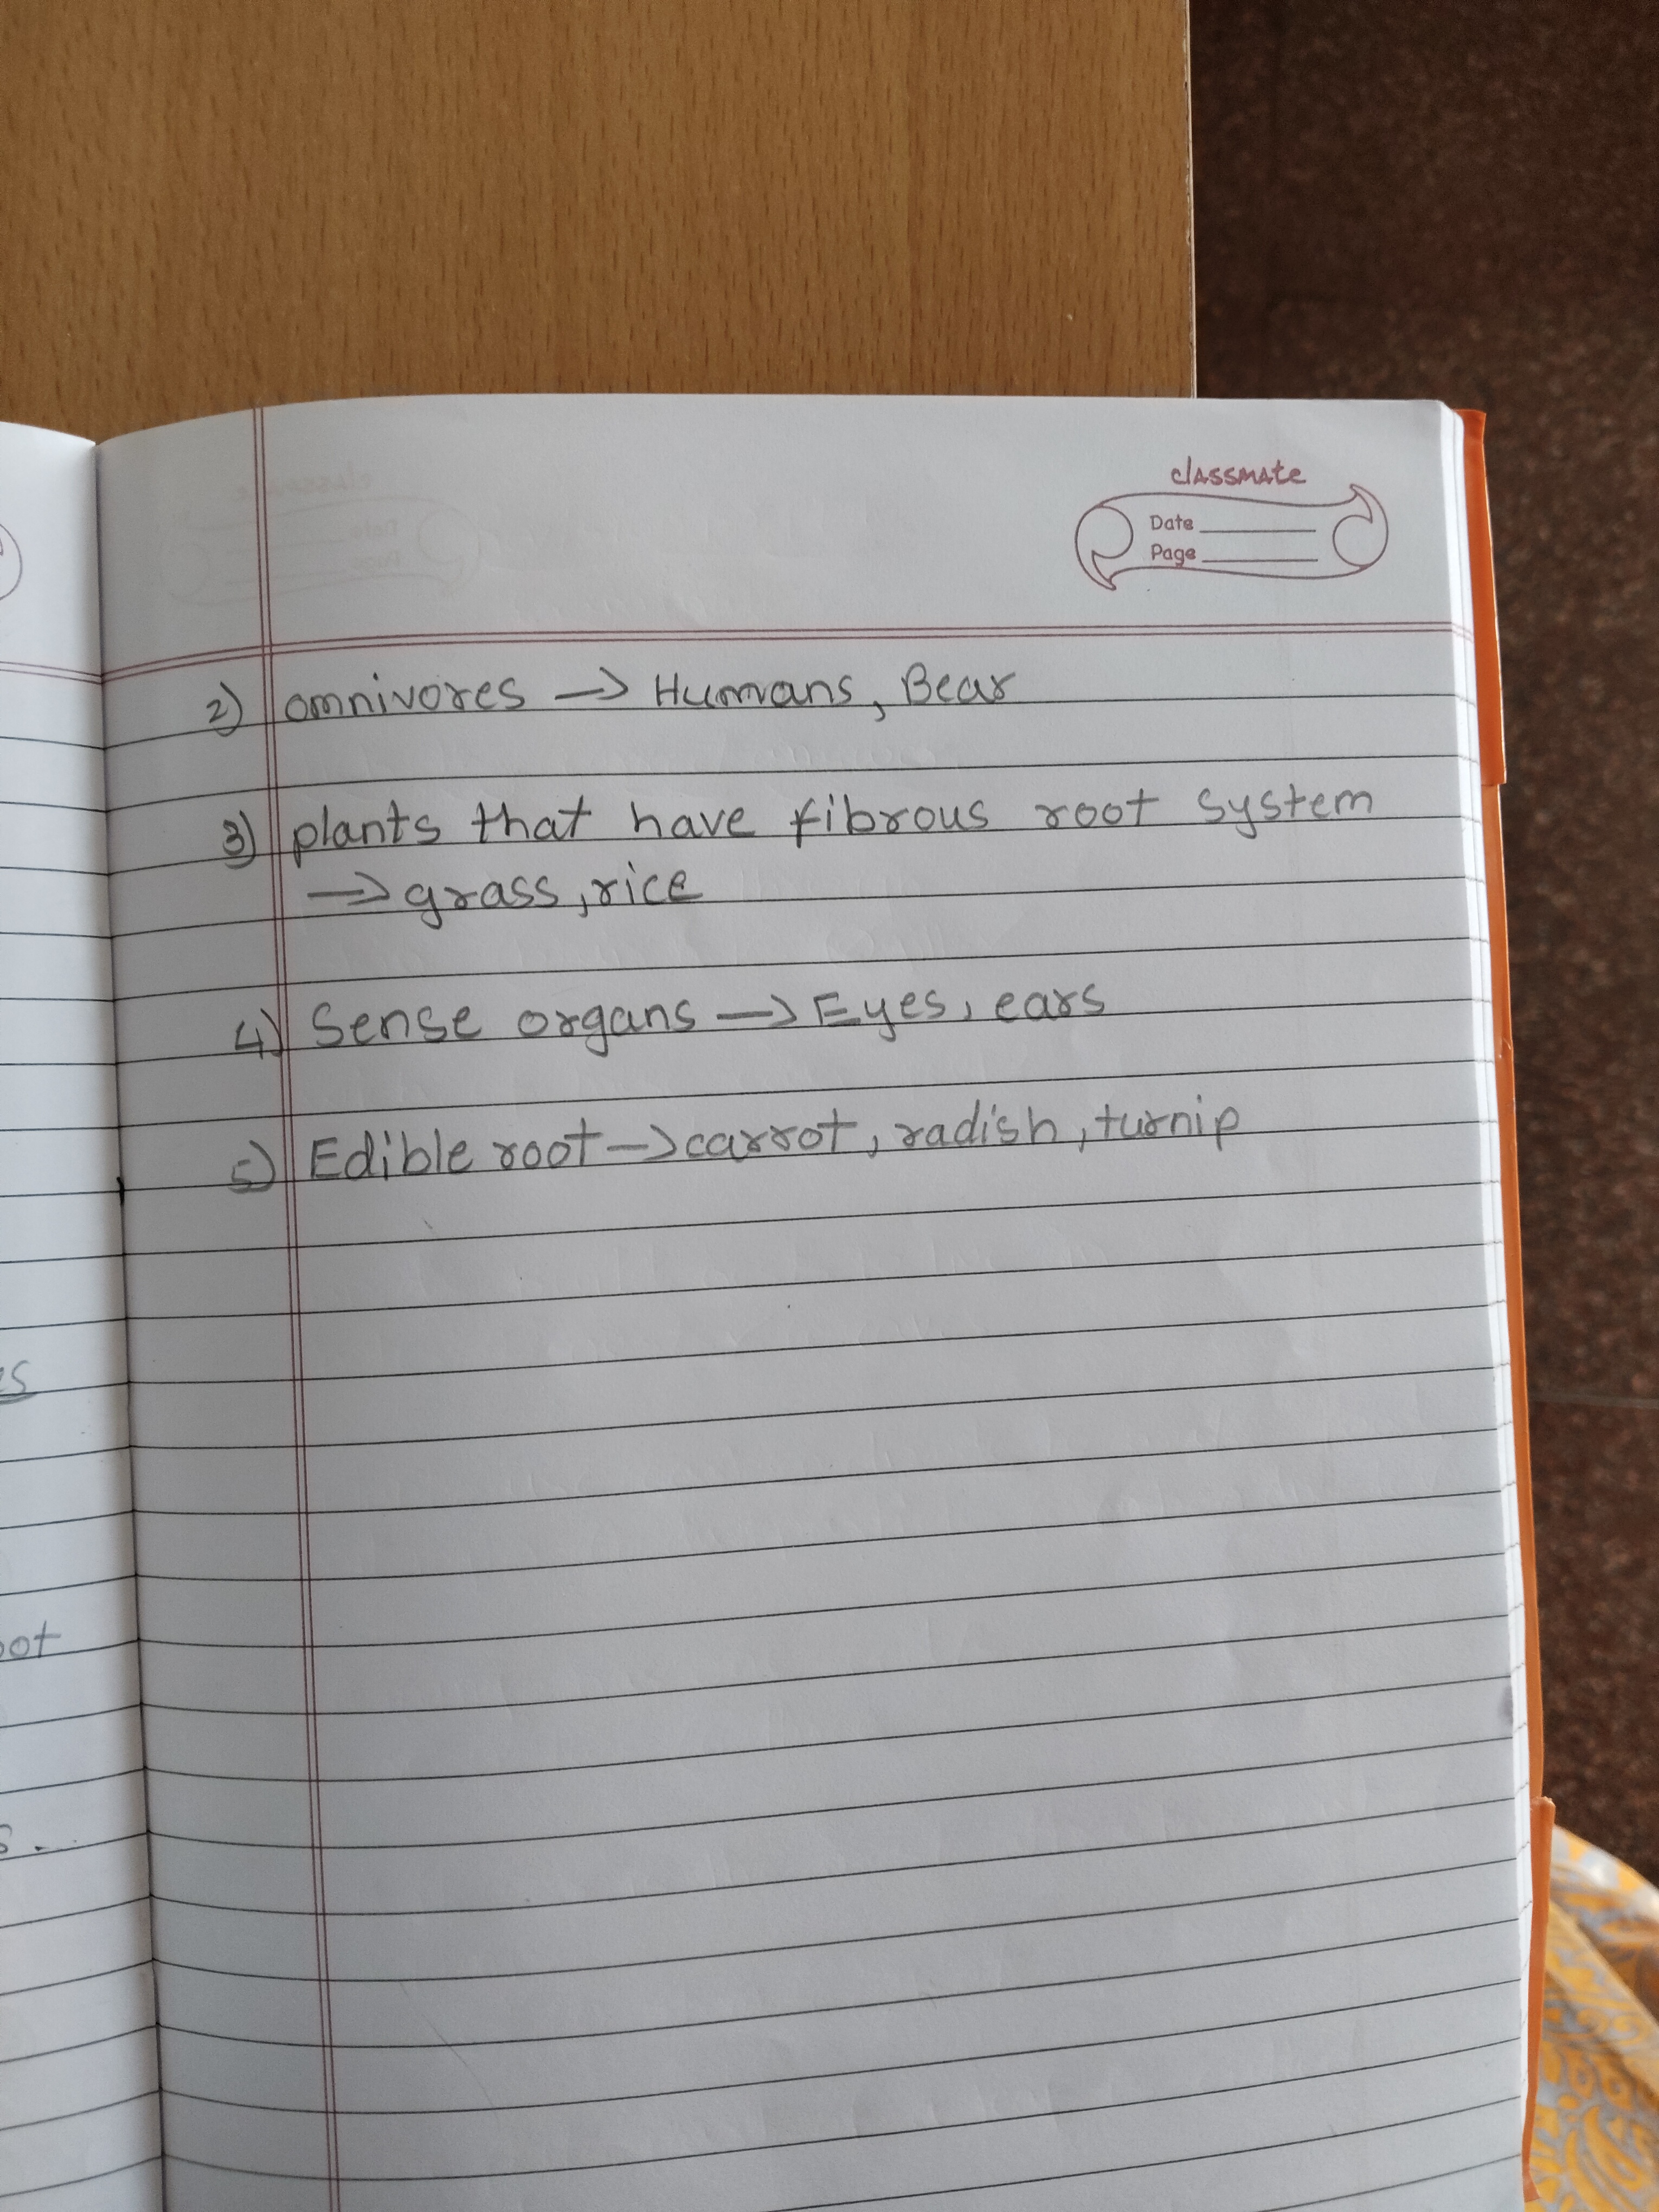 classmate
Date
Page
2) omnivores → Humans, Bear
3) plants that have fibrous root system
→ grass, rice
4) Sense organs → Eyes, ears
5) Edible root → carrot, radish, turnip